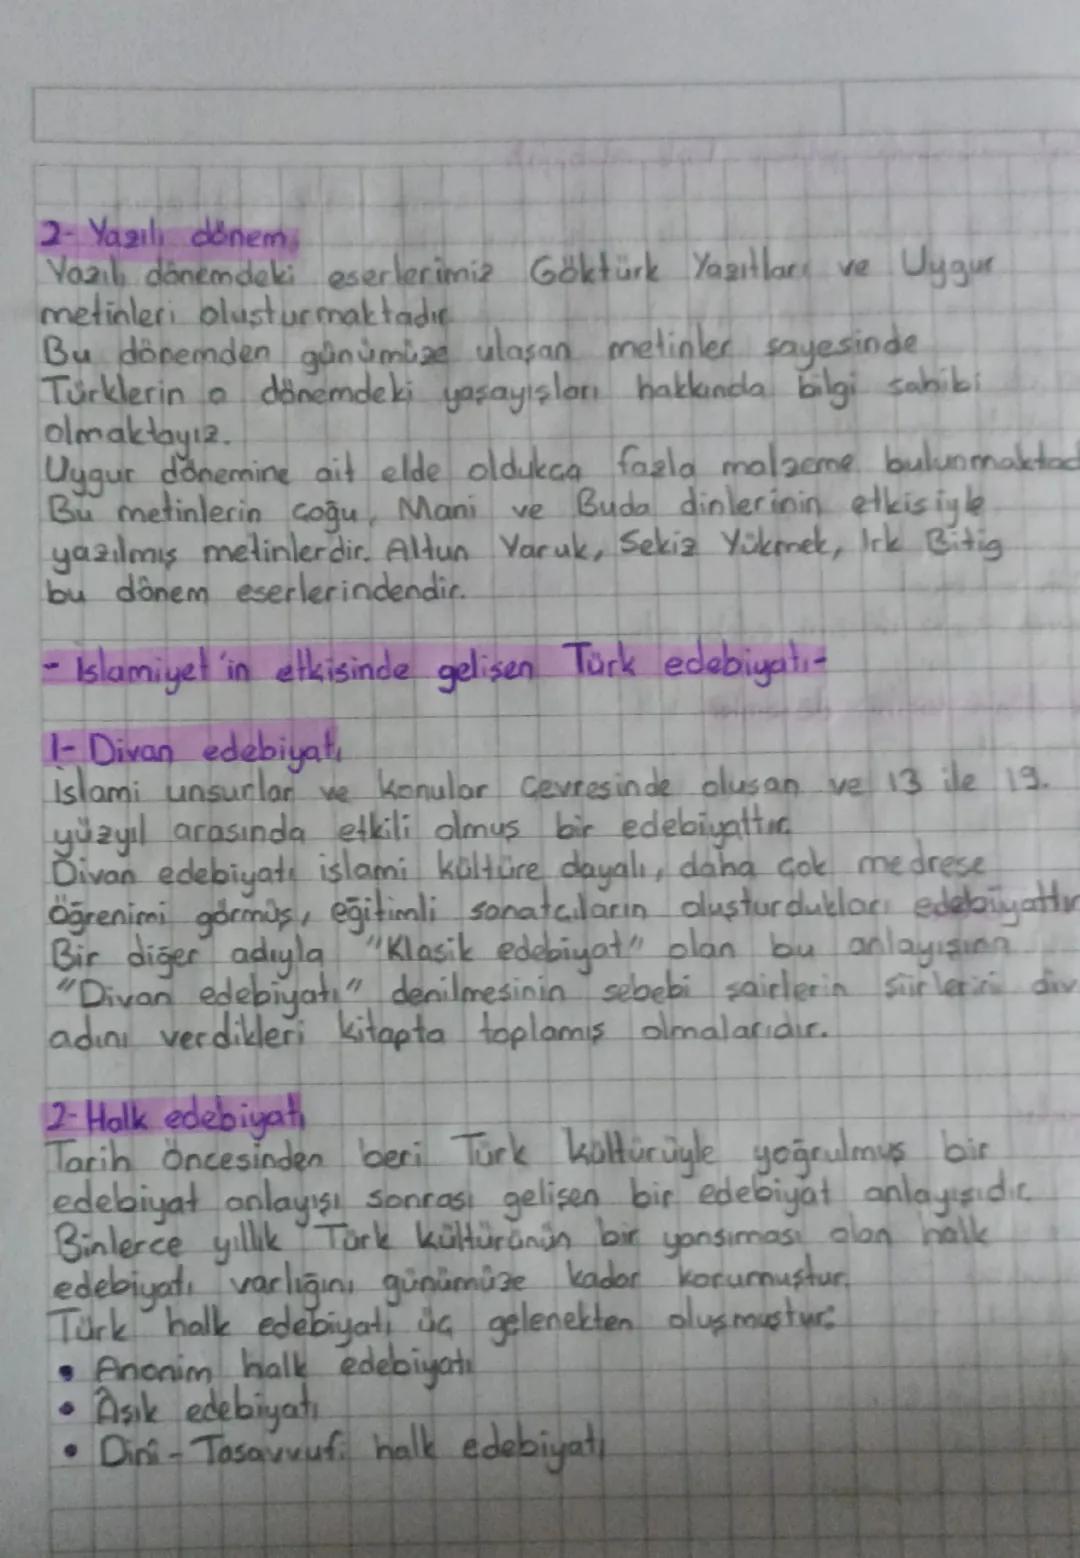 2- Yazılı dönem
Yazılı dönemdeki eserlerimiz Göktürk Yazıtları ve Uygur
metinleri oluşturmaktadır
Bu dönemden günümüze ulaşan metinler sayesinde
Türklerin o dönemdeki yaşayışları hakkında bilgi sahibi
olmaktayız.
Uygur dönemine ait elde oldukça fazla malzeme bulunmaktad
Bu metinlerin çoğu, Mani ve Buda dinlerinin etkisiyle
yazılmış metinlerdir. Altun Yaruk, Sekiz Yükmek, Irk Bitig
bu dönem eserlerindendir.
- İslamiyet'in etkisinde gelişen Türk edebiyatı-
1- Divan edebiyatı
İslami unsurlar ve konular çevresinde oluşan ve 13 ile 19.
yüzyıl arasında etkili olmuş bir edebiyattır
Divan edebiyatı islami kültüre dayalı, daha çok medrese
öğrenimi görmüş, eğitimli sanatçıların oluşturdukları edebiyattır
Bir diğer adıyla "Klasik edebiyat" olan bu anlayışın
"Divan edebiyatı" denilmesinin sebebi şairlerin şiirlerini div
adını verdikleri kitapta toplamış olmalarıdır.
2- Halk edebiyatı
Tarih öncesinden beri Türk kültürüyle yoğrulmuş bir
edebiyat anlayışı sonrası gelişen bir edebiyat anlayışıdır
Binlerce yıllık Türk kültürünün bir yansıması olan halk
edebiyatı varlığını günümüze kadar korumuştur.
Türk halk edebiyatı üç gelenekten oluşmuştur:
• Anonim halk edebiyatı
• Âşık edebiyatı
• Dinî - Tasavvufi halk edebiyatı